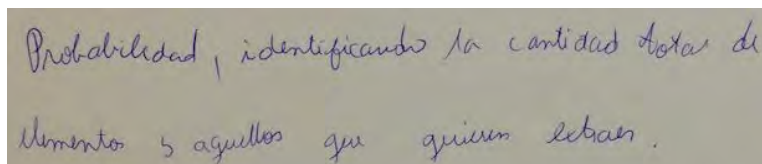 Probabilidad, identificando la cantidad total de
elementos y aquellos que quieren extraer.